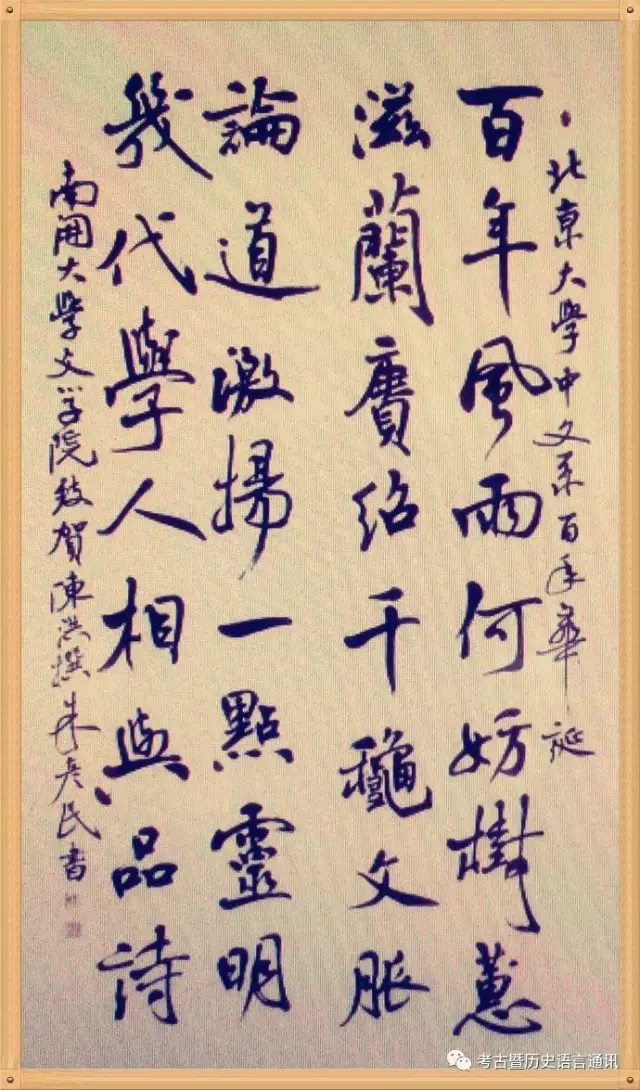 北京大學中文系百年華誕
百年風雨何妨樹蕙
滋蘭賡紹千龝文脈
論道激揚一點靈明
幾代學人相與品詩
南開大學文学院致賀陳洪撰朱彦民書
考古暨历史语言通讯